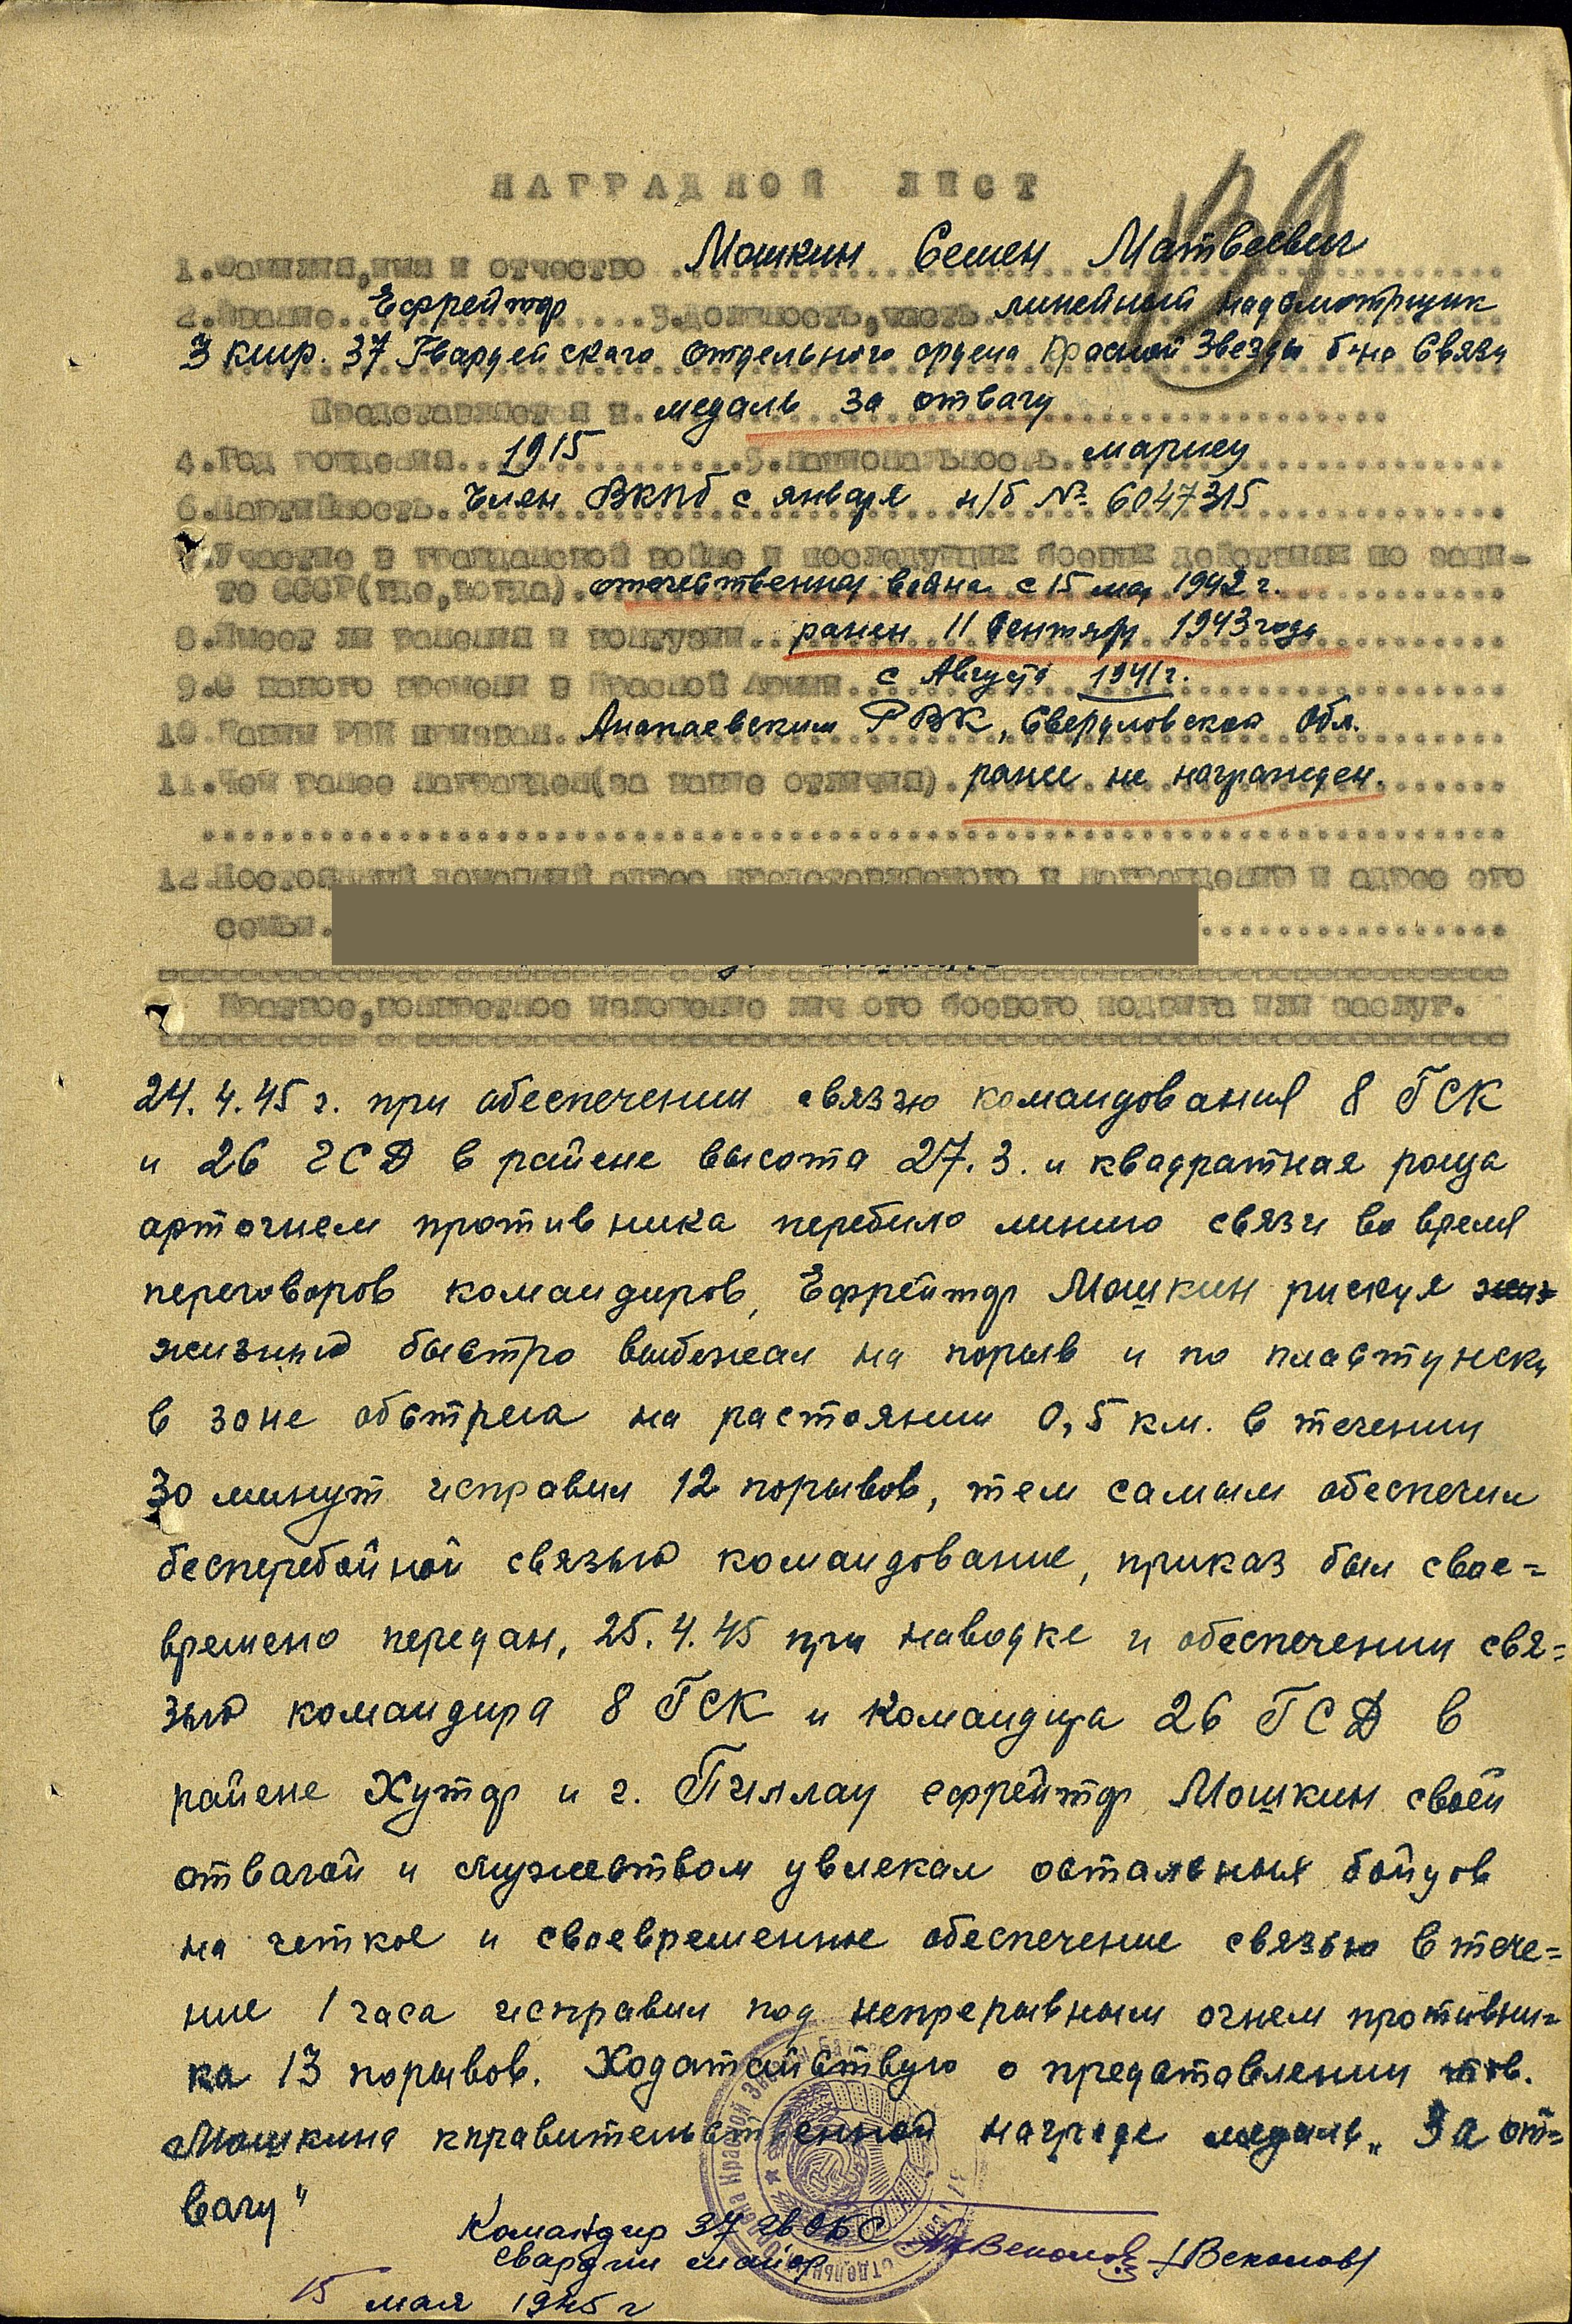 НАГРАДНОЙ ЛИСТ
1.Фамилия,имя и отчество Мошкин Семен Матвеевич
2.Звание Ефрейтор 3.Должность,часть линейный надсмотрщик
3 кшр. 37 Гвардейского отдельного ордена Красной Звезды б-на Связи
Представляется к медаль за отвагу
4.Год рождения 1915 5.Национальность мариец
6.Партийность Член ВКПб с января п/б № 6047315
7.Участие в гражданской войне и последующих боевых действиях по защи-
те СССР(где,когда) отечественная война с 15 мая 1942 г.
8.Имеет ли ранения и контузии ранен 11 Сентября 1943 года
9.С какого времени в Красной Армии с Августа 1941 г.
10 Каким РВК призван Алапаевским РВК, Свердловской обл.
11.Чем ранее награжден(за какие отличия) ранее не награжден.
12.Постоянный домашний адрес представляемого к награждению и адрес его
семьи.
Краткое,конкретное изложение личного боевого подвига или заслуг.
24.4.45 г. при обеспечении связью командования 8 ГСК
и 26 ГСД в районе высота 27.3. и квадратная роща
артогнем противника перебило линию связи во время
переговоров командиров, Ефрейтор Мошкин рискуя
жизнью быстро выбежал на порыв и по пластунски
в зоне обстрела на растоянии 0,5 км. в течении
30 минут исправил 12 порывов, тем самым обеспечил
бесперебойной связью командование, приказ был свое=
времено передан, 25.4.45 при наводке и обеспечении свя=
зью командира 8 ГСК и командира 26 ГСД в
районе Хутор и г. Пиллау ефрейтор Мошкин своей
отвагой и мужеством увлекал остальных бойцов
на четкое и своевременное обеспечение связью в тече=
ние 1 часа исправил под непрерывным огнем противни=
ка 13 порывов. Ходатайствую о представлении тов.
Мошкина кправительственной награде медаль „За от=
вагу"
Командир 37 гв ОБС
гвардии майор (Веколов)
15 мая 1945 г